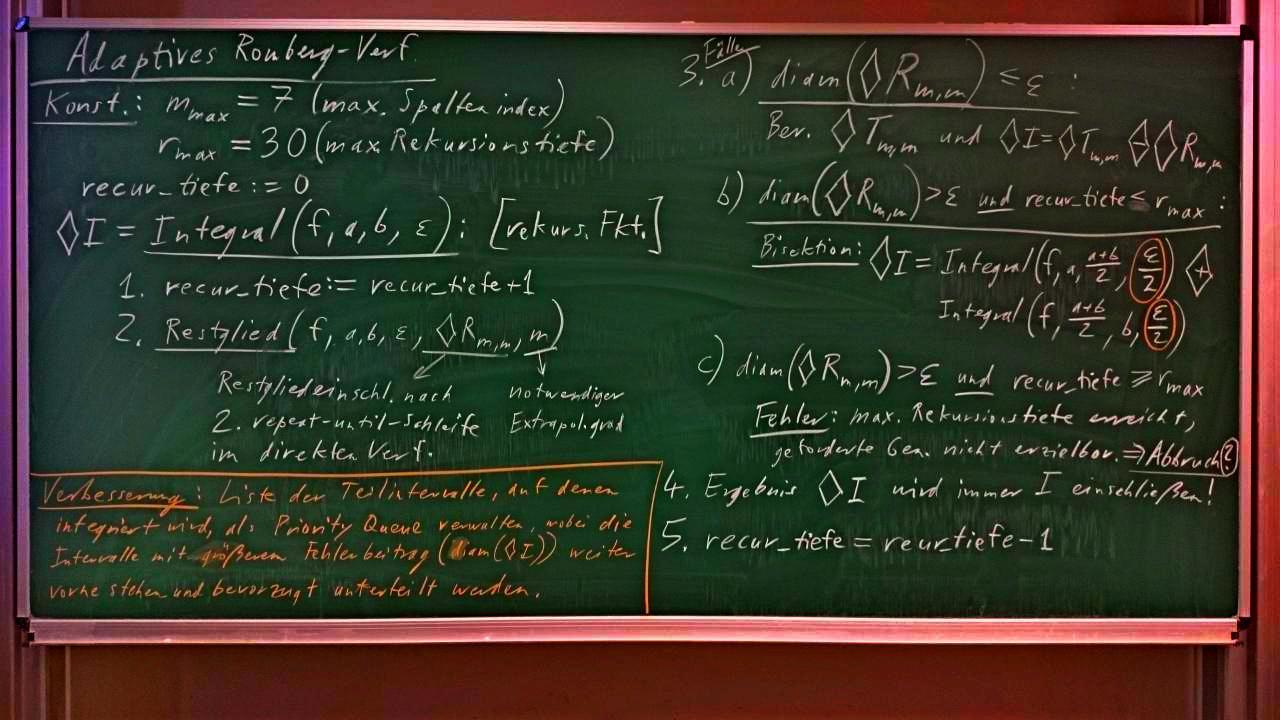 Adaptives Romberg-Verf.
Konst.: m_max = 7 (max. Spaltenindex)
r_max = 30 (max. Rekursionstiefe)
recur_tiefe := 0
◊I = Integral(f, a, b, ε): [rekurs. Fkt.]
1. recur_tiefe := recur_tiefe+1
2. Restglied(f, a, b, ε, ◊R_m,m, m)
Restgliedeinschl. nach
2. repeat-until-Schleife
im direkten Verf.
notwendiger
Extrapol.grad
Verbesserung: Liste der Teilintervalle, auf denen
integriert wird, als Priority Queue verwalten, wobei die
Intervalle mit größerem Fehlerbeitrag (diam(◊I)) weiter
vorne stehen und bevorzugt unterteilt werden.
Fälle
3. a) diam(◊R_m,m) ≤ ε :
Ber. ◊T_m,m und ◊I = ◊T_m,m ◊+ ◊R_m,m
b) diam(◊R_m,m) > ε und recur_tiefe ≤ r_max :
Bisektion: ◊I = Integral(f, a, (a+b)/2, ε/2) ◊+
Integral(f, (a+b)/2, b, ε/2)
c) diam(◊R_m,m) > ε und recur_tiefe ≥ r_max
Fehler: max. Rekursionstiefe erreicht,
geforderte Gen. nicht erzielbar. ⇒ Abbruch ?
4. Ergebnis ◊I wird immer I einschließen!
5. recur_tiefe = recur_tiefe - 1